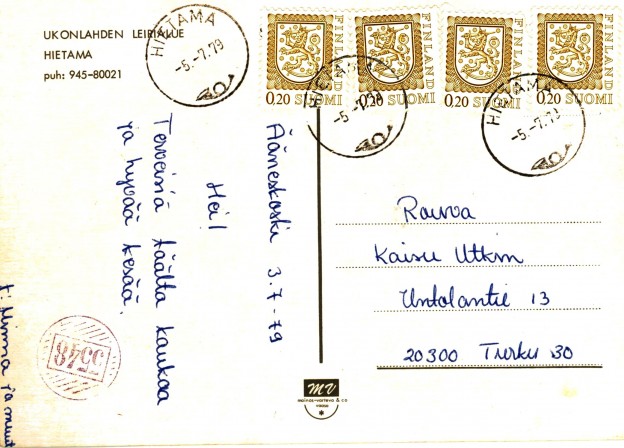 UKONLAHDEN LEIRIALUE
HIETAMA
puh: 945-80021
HIETAMA
-5.-7.79
FINLAND
0,20 SUOMI
FINLAND
0,20 SUOMI
FINLAND
0,20 SUOMI
FINLAND
0,20 SUOMI
HIETAMA
-5.-7.79
HIETAMA
-5.-7.79
Äänekoski 3.7-79
Hei!
Terveisiä täältä kaukaa
ja hyvää kesää.
t: Minna ja muut
Rouva
Kaisu Utkin
Untolantie 13
20300 Turku 30
5548
MV
mainos-vartava & co
vaasa